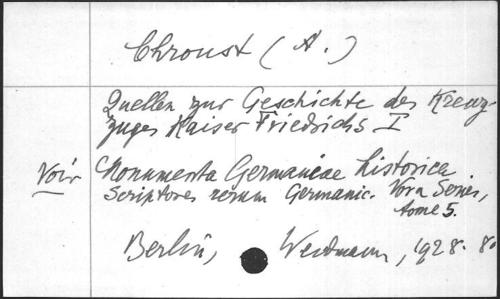 Chroust (A.)
Quellen zur Geschichte des Kreuz-
zuges Kaiser Friedrichs I
Voir Monumenta Germaniae historica
Scriptores rerum Germanic. Nova Series,
tome 5.
Berlin, Weidmann, 1928. 8o